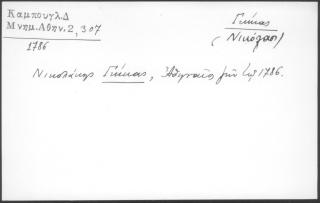 Καμπουγλ.Δ
Μνημ.Αθην.2,307
1786
Γκίκας
(Νικόλαος)
Νικολάκης Γκίκας, Ἀθηναῖος ζῶν τῷ 1786.